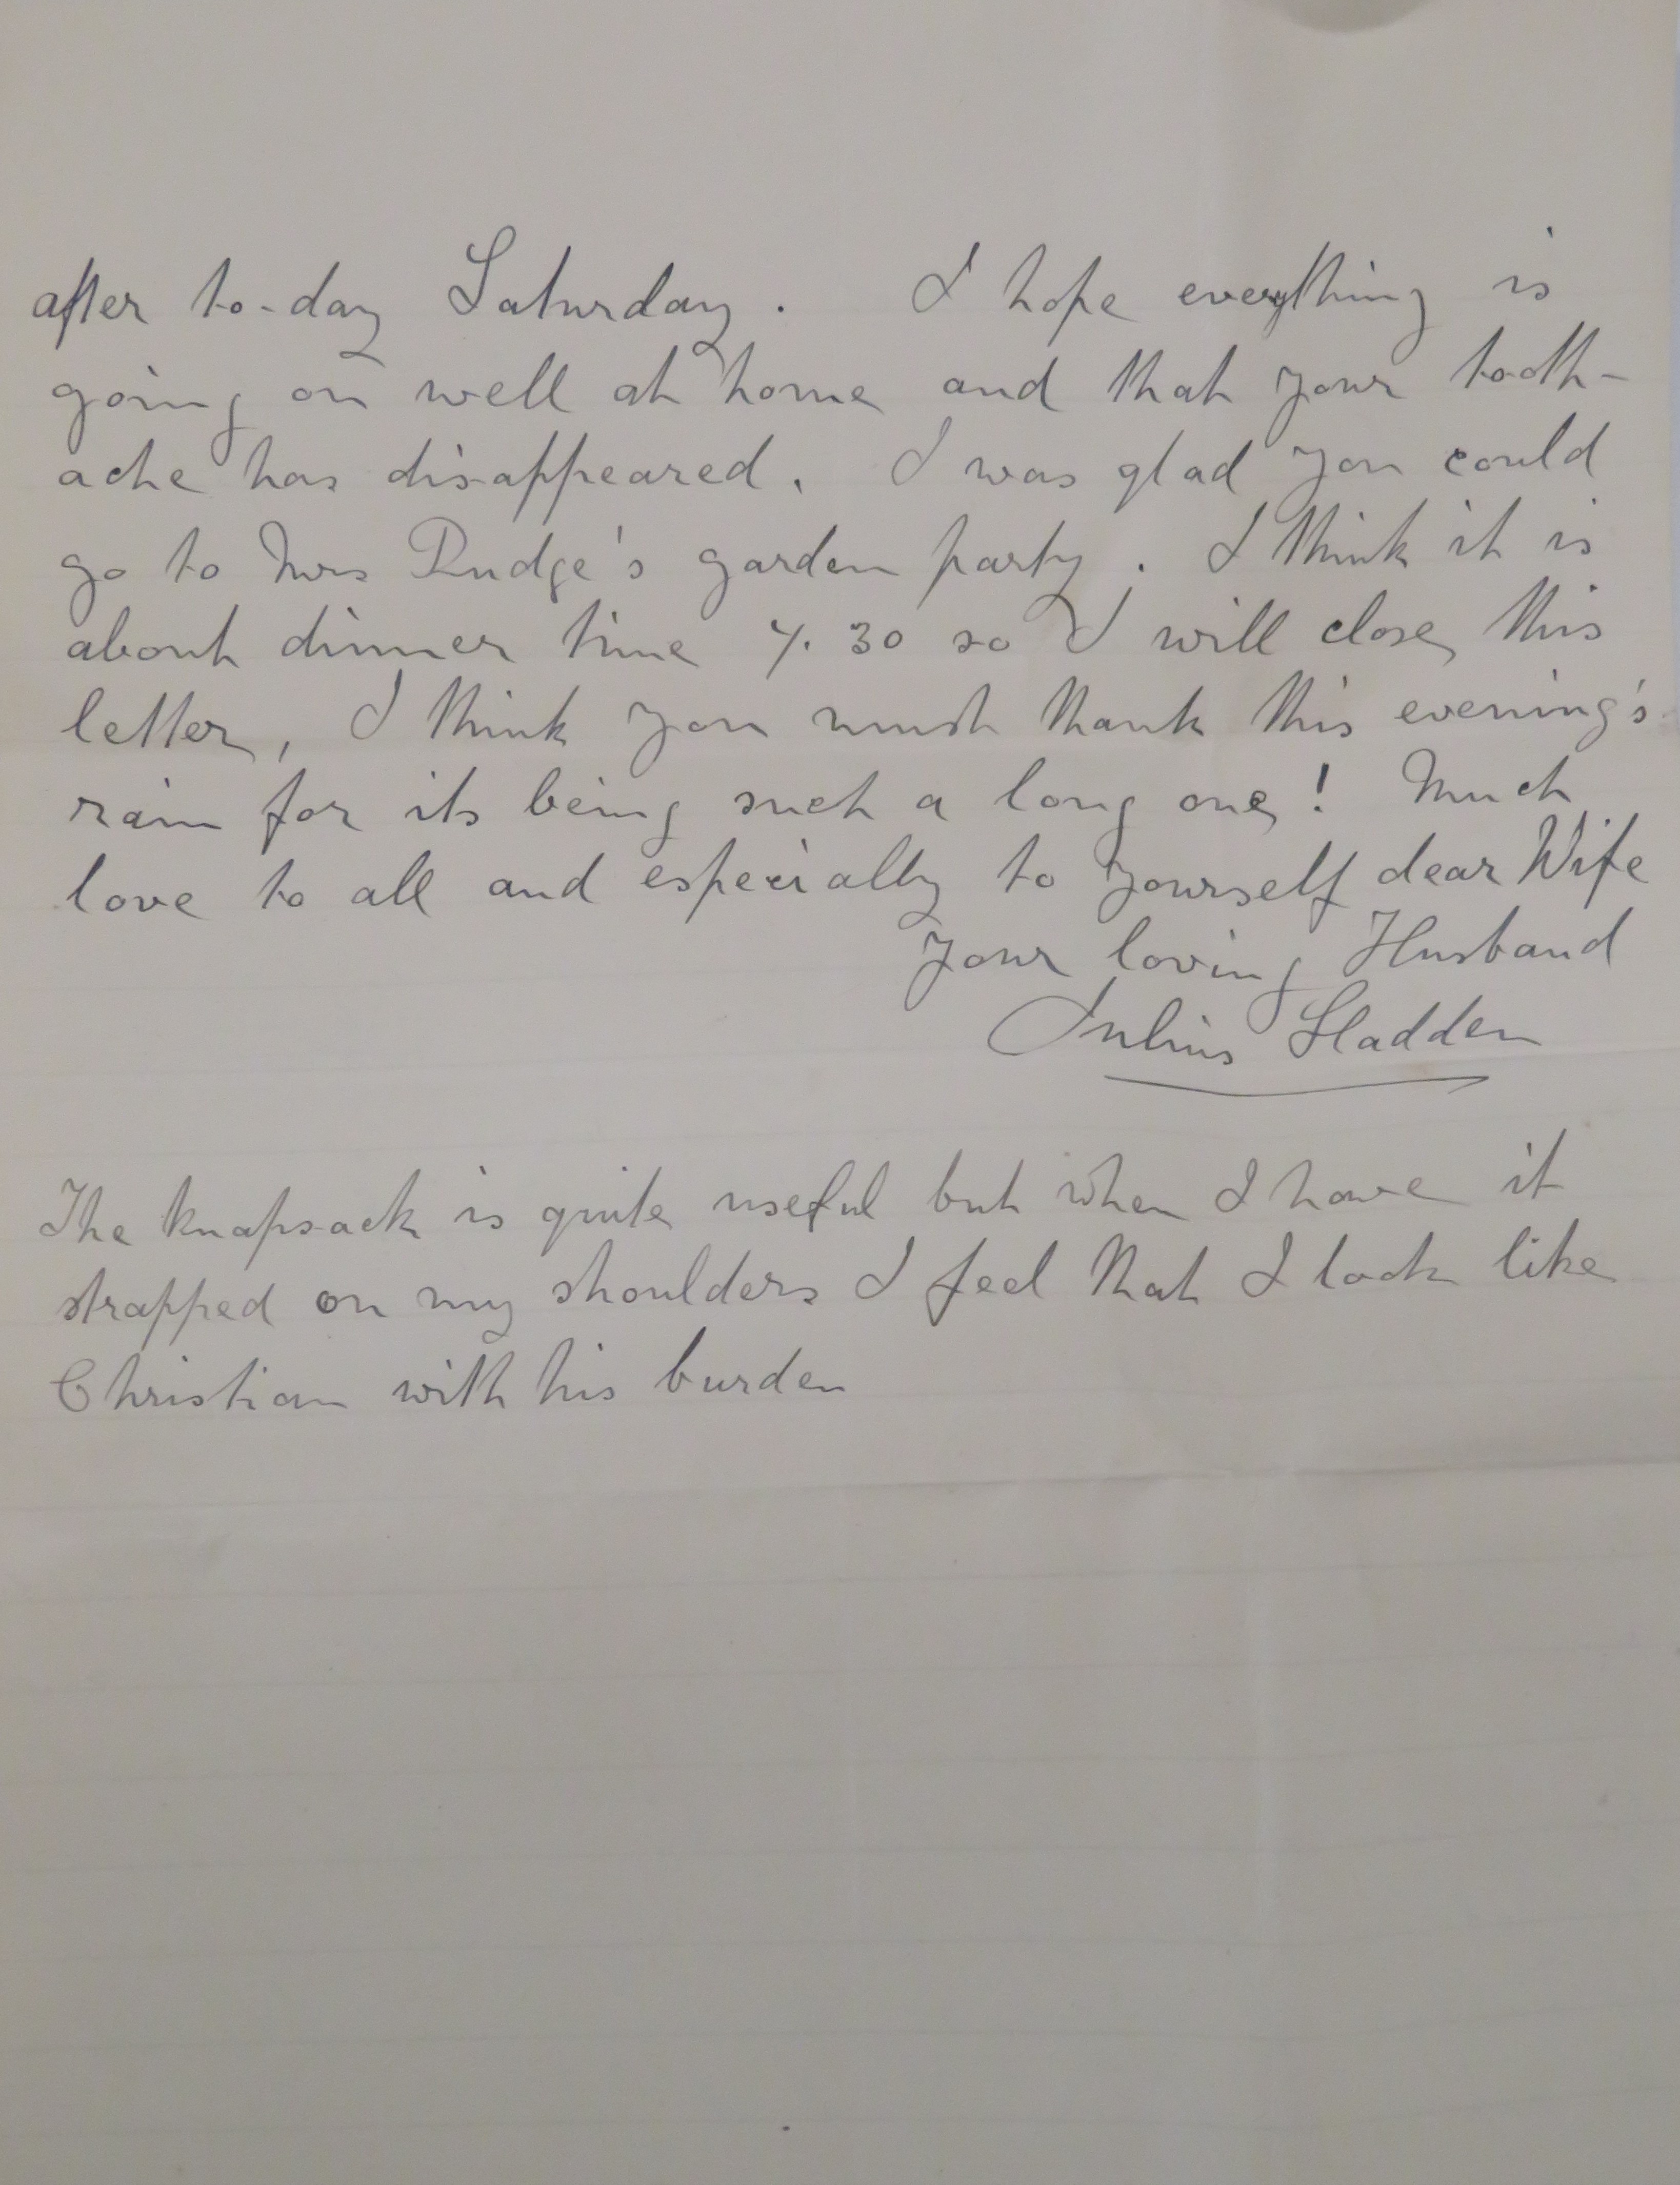 after to-day Saturday. I hope everything is
going on well at home and that your tooth-
ache has disappeared. I was glad you could
go to Mrs Rudge's garden party. I think it is
about dinner time 7.30 so I will close this
letter, I think you must thank this evening's
rain for its being such a long one! Much
love to all and especially to yourself dear Wife
Your loving Husband
Julius Sladden
The knapsack is quite useful but when I have it
strapped on my shoulders I feel that I look like
Christian with his burden